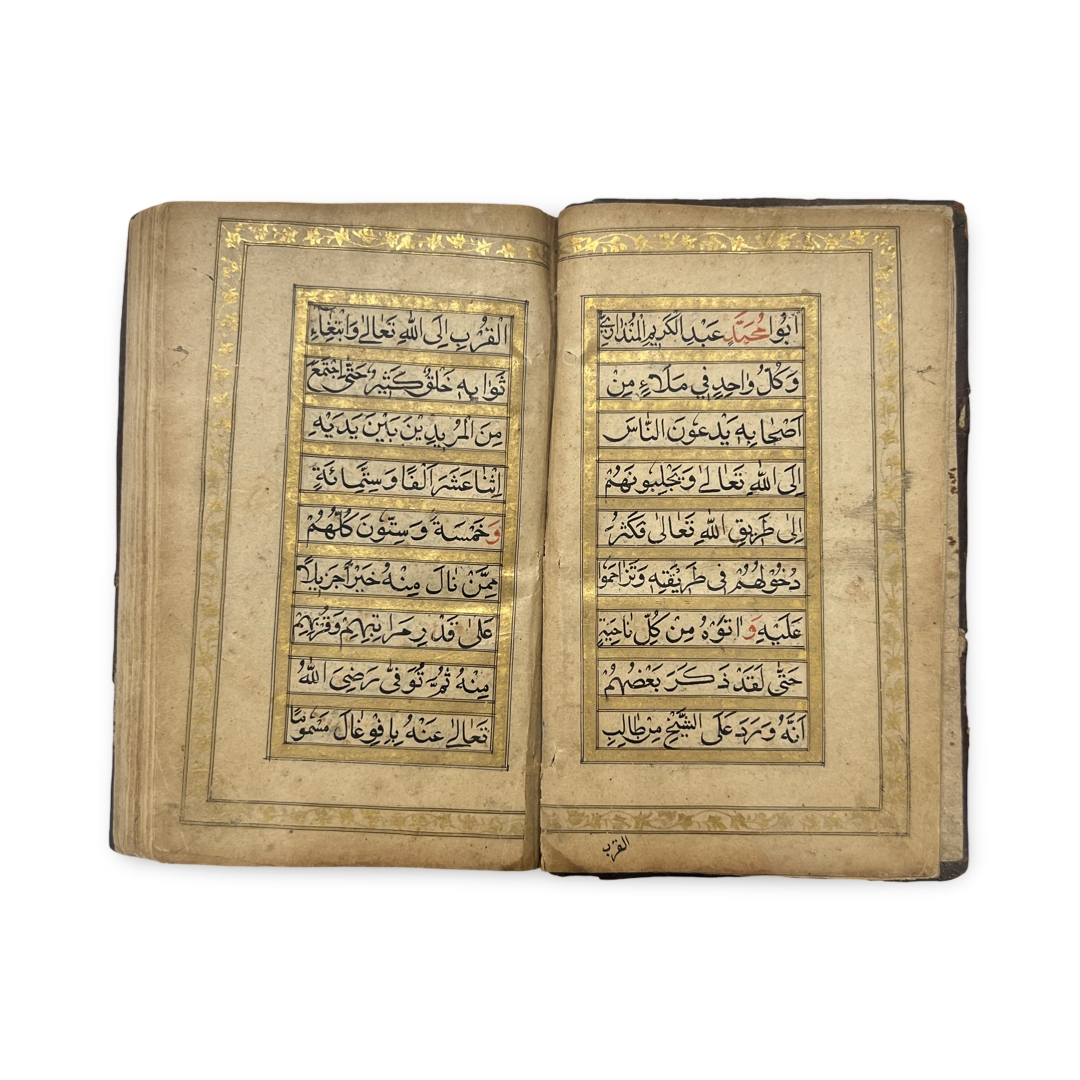 اَبُوا مُحَمَّدٍ عَبْدِ الْكَرِيمِ الْمُنْدَارِيُّ
وَكُلُّ وَاحِدٍ فِي مَلَاءٍ مِنْ
اَصْحَابِهِ يَدْعُونَ النَّاسَ
اِلَى اللّٰهِ تَعَالٰى وَيَجْلِبُونَهُمْ
اِلٰى طَرِيقِ اللّٰهِ تَعَالٰى فَكَثُرَ
دُخُولُهُمْ فِى طَرِيْقَتِهِ وَتَزَاحَمُوا
عَلَيْهِ وَاَتَوْهُ مِنْ كُلِّ نَاحِيَةٍ
حَتّٰى لَقَدْ ذَكَرَ بَعْضُهُمْ
اَنَّهُ وَرَدَ عَلَى الشَّيْخِ مِنْ طَالِبِ
القرب
الْقُرْبِ اِلَى اللّٰهِ تَعَالٰى وَابْتِغَاءِ
ثَوَابِهِ خَلْقٌ كَثِيرٌ حَتَّى اجْتَمَعَ
مِنَ الْمُرِيدِيْنَ بَيْنَ يَدَيْهِ
اِثْنَا عَشَرَ اَلْفًا وَسِتُّمِائَةٍ
وَخَمْسَةٌ وَسِتُّونَ كُلُّهُمْ
مِمَّنْ نَالَ مِنْهُ خَيْرًا جَزِيلًا
عَلٰى قَدْرِ مَرَاتِبِهِمْ وَقُرْبِهِمْ
مِنْهُ ثُمَّ تُوَفِّىَ رَضِىَ اللّٰهُ
تَعَالٰى عَنْهُ بِاِفوِغَالَ مَسْمُومًا